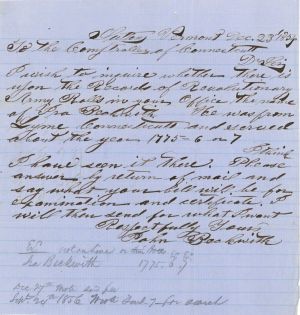 Vermont Dec. 23d
To the Comptroller of Connecticut
Dr Sir
I wish to inquire whether there is
upon the Records of Revolutionary
Army Rolls in your Office the name
of Ira Beckwith He was from
Lyme Connecticutt and served
about the year 1775-6 or 7
I think
I have seen it there. Please
answer by return of mail and
say what your bill will be for
examination and certificate. I
will then send for what I want
Respectfully Yours
John Beckwith
not on
Ira Beckwith 1775. 6. 7
Dec 27th Wrote
Sept. 24th 1856 Wrote for search